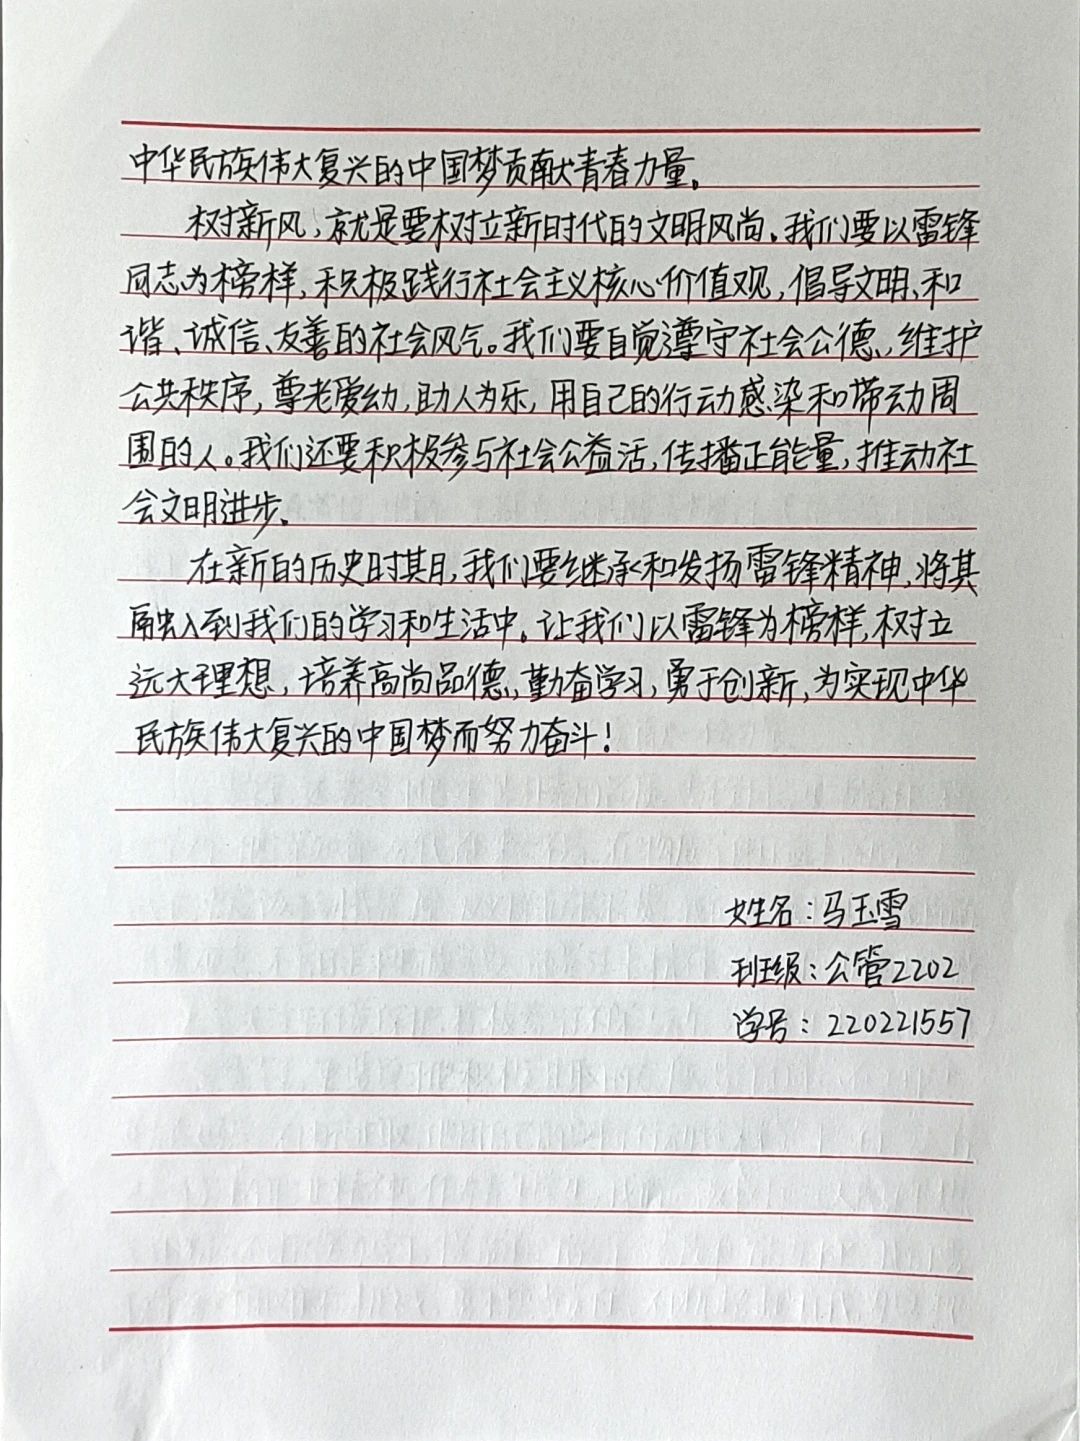 中华民族伟大复兴的中国梦贡献青春力量。
树新风，就是要树立新时代的文明风尚。我们要以雷锋
同志为榜样，积极践行社会主义核心价值观，倡导文明、和
谐、诚信、友善的社会风气。我们要自觉遵守社会公德，维护
公共秩序，尊老爱幼，助人为乐，用自己的行动感染和带动周
围的人。我们还要积极参与社会公益活，传播正能量，推动社
会文明进步。
在新的历史时期，我们要继承和发扬雷锋精神，将其
融入到我们的学习和生活中。让我们以雷锋为榜样，树立
远大理想，培养高尚品德，勤奋学习，勇于创新，为实现中华
民族伟大复兴的中国梦而努力奋斗！
姓名：马玉雪
班级：公管2202
学号：220221557